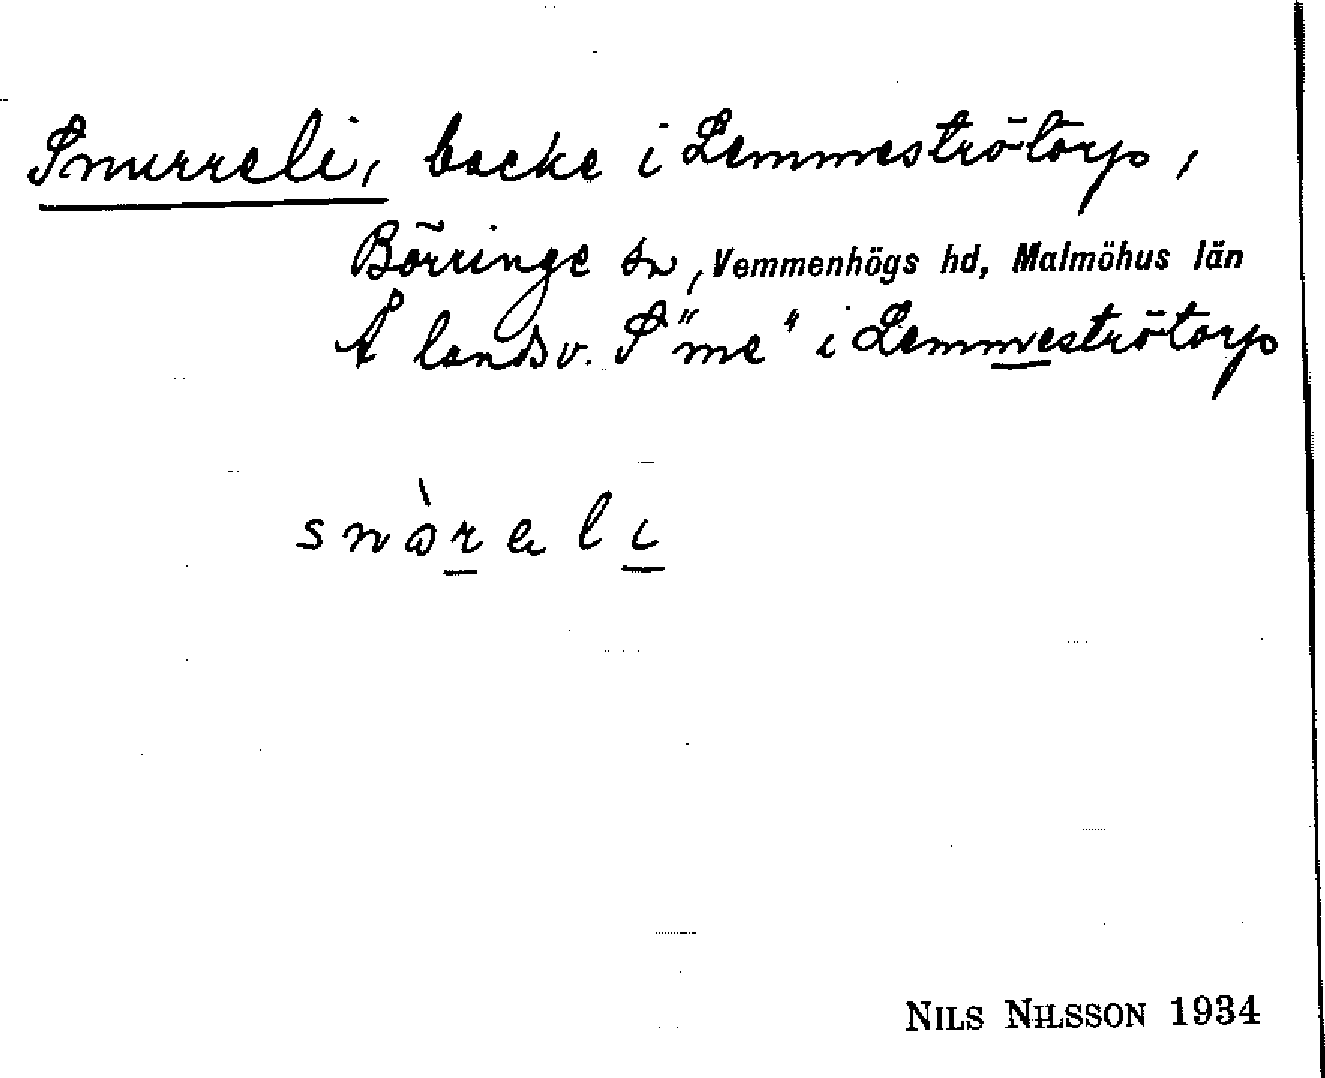 Snurreli, backe i Lemmeströtorp,
Börringe sn, Vemmenhögs hd, Malmöhus län
Å landsv. S "me" i Lemmeströtorp
snòreli
NILS NILSSON 1934